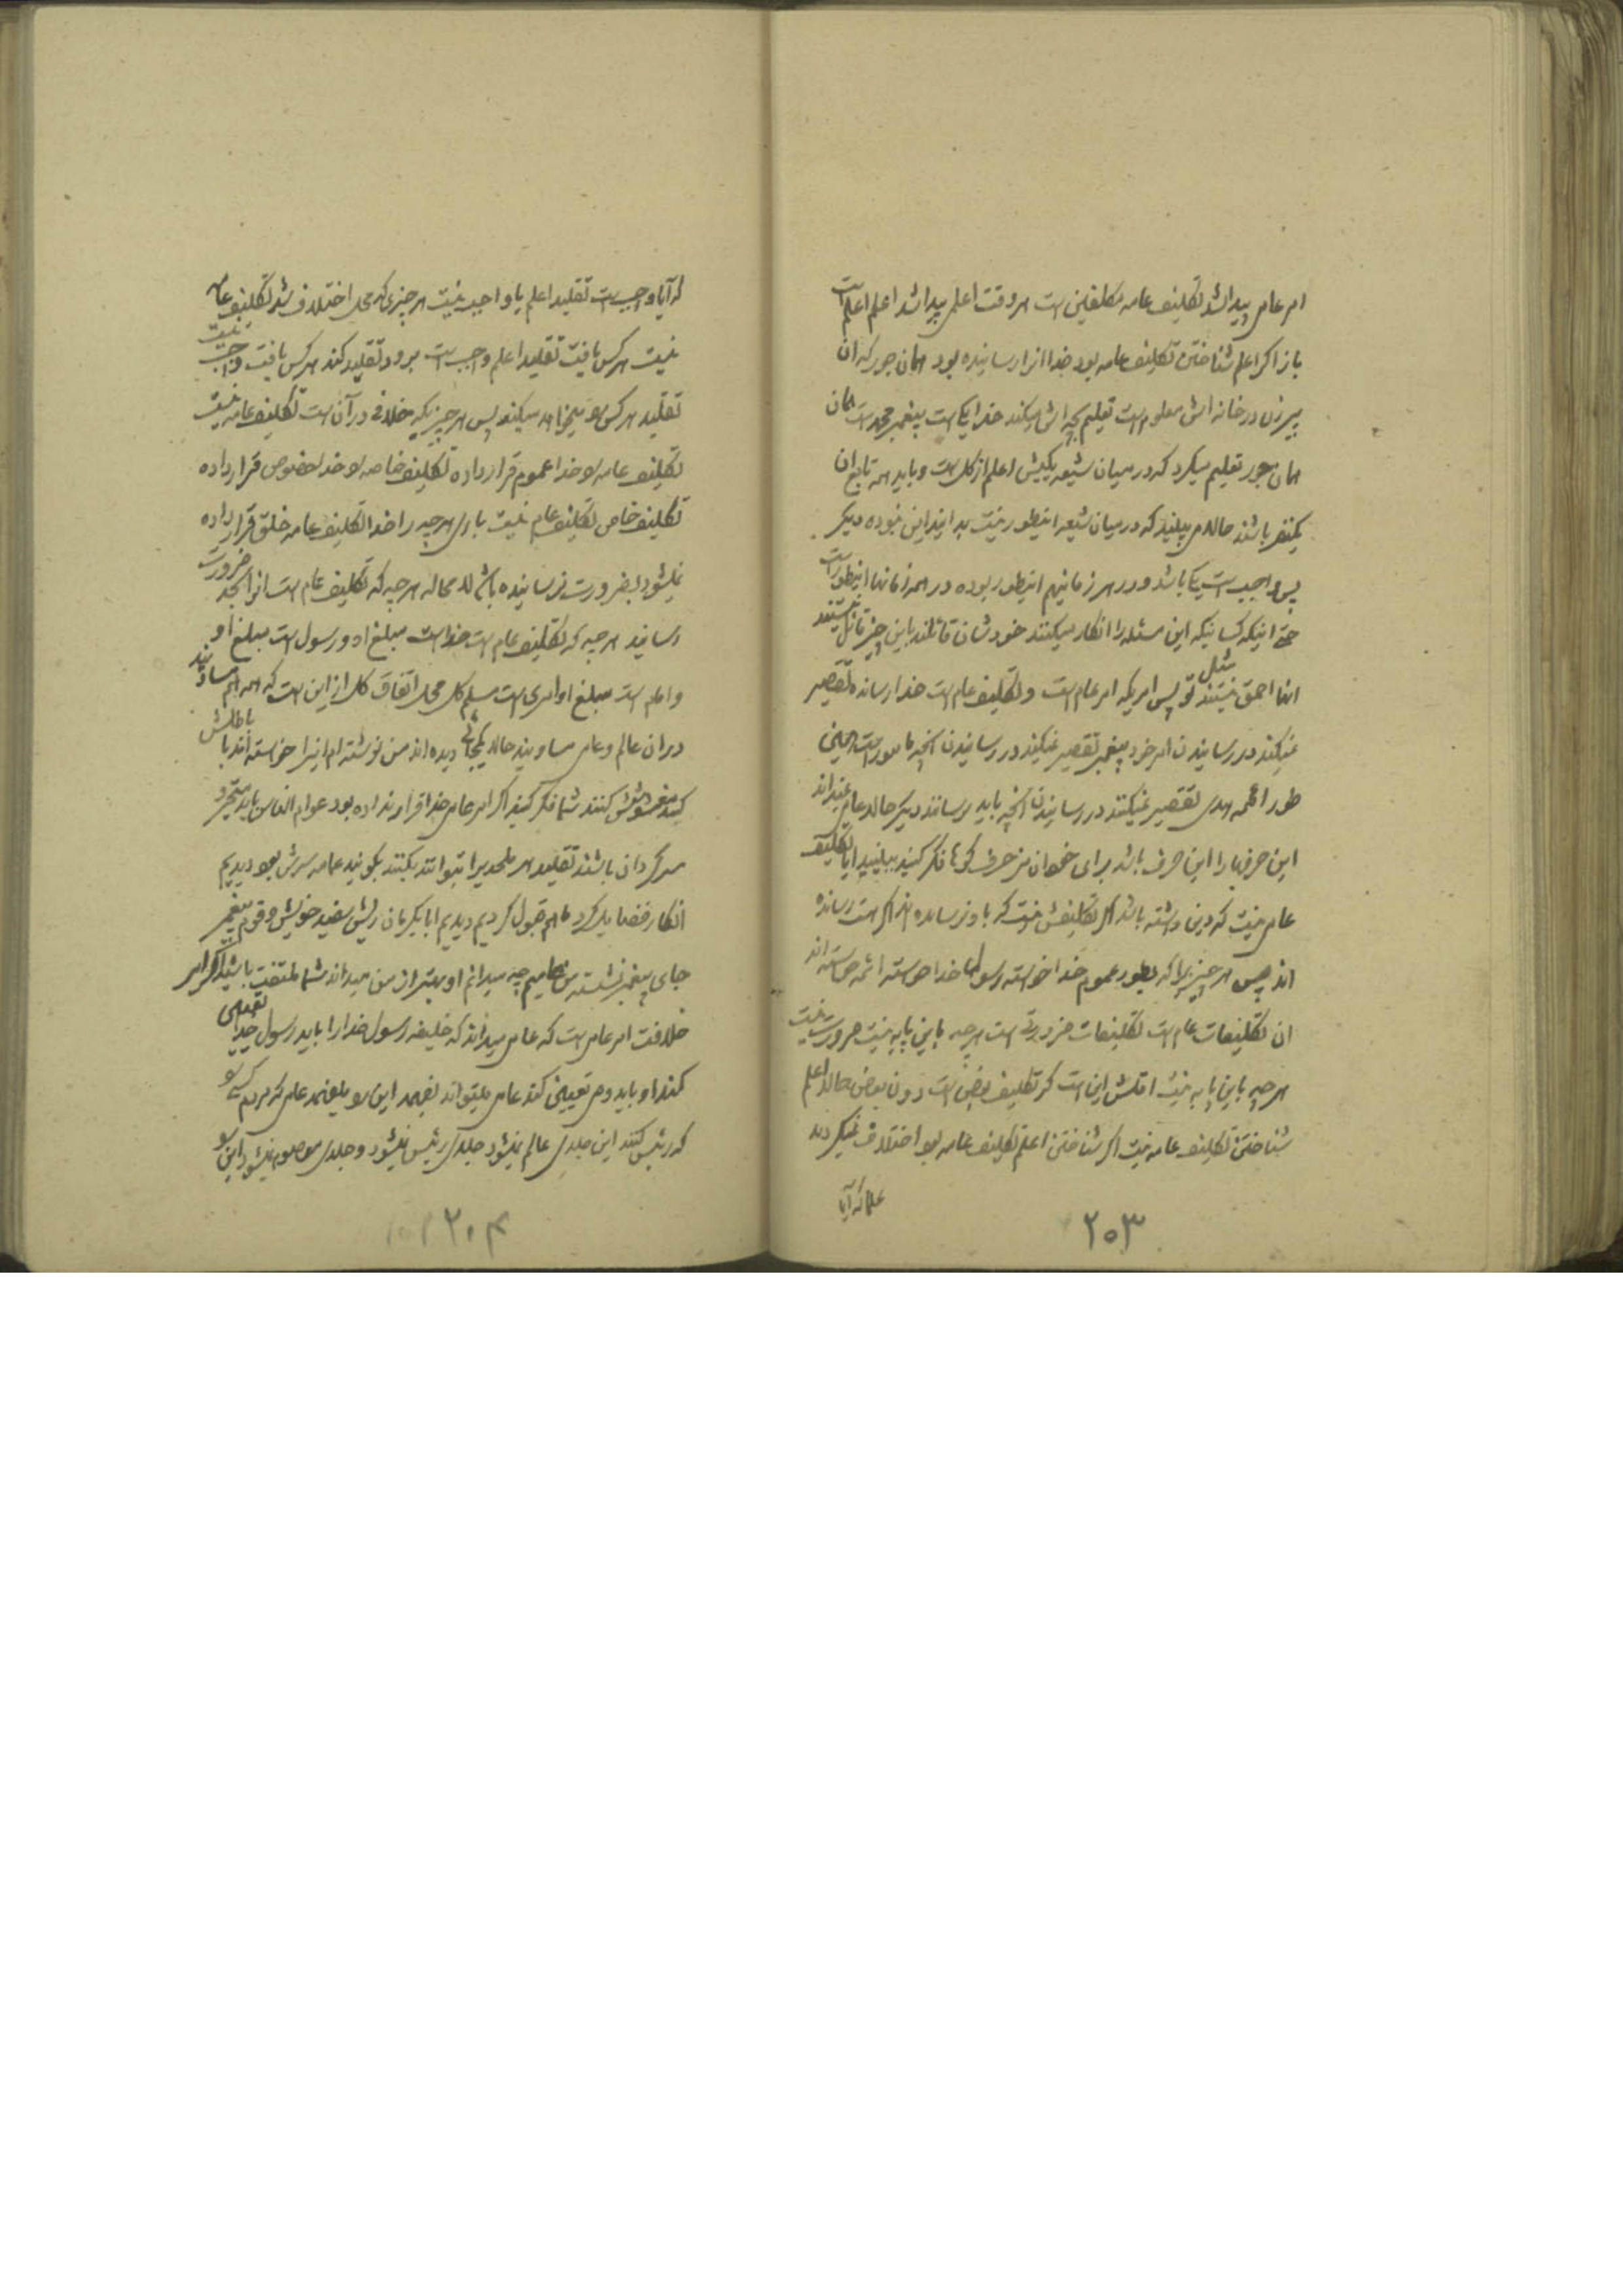 امر عامی پیدا شد تکلیف عامه مکلفین است هر وقت اعلمی پیدا شد اعلم اعلم است
باز اگر اعلم شناختن تکلیف عامه بود خدا انرا رسانیده بود همان جور که ان
پیرزن در خانه اش معلوم است تعلیم بچه اش میکند خدا یکی است پیغمبر محمد است همان
همان جور تعلیم میکرد که در میان شیعه یکیش اعلم از کل است و باید همه تابع ان
یکنفر باشند حالا می بینید که در میان شیعه اینطور نیست بدانید این نبوده دیگر
پس واجب است یکی باشد و در هر زمانیهم اینطور بوده در همه زمانها اینطور است
حتی اینکه کسانیکه این مسئله را انکار میکنند خودشان قائلند باین چیز قائل نیستند
انها احمق نیستند مثل تو پس امریکه امر عام است و تکلیف عام است خدا رسانده تقصیر
نمیکند در رسانیدن امر خود پیغمبر تقصیر نمیکند در رسانیدن انچه مامور است همین
طور ائمه هدی تقصیر نمیکنند در رسانیدن انچه باید برسانند دیگر حالا عامی نمیداند
این حرفها را این حرف باشد برای خوان فکر کنید ببینید ایا تکلیف
عامی نیست که دین داشته باشد اگر تکلیفش نیست که باو نرسانده اند اگر هست رسانده
اند پس هر چیزیرا که بطور عموم خدا خواسته رسول خدا خواسته ائمه خواسته اند
ان تکلیفات عام است تکلیفات ضروریه است هر چه باین پایه نیست ضرورت نیست
هر چه باین پایه نیست اقلش این است که تکلیف بعض است دون بعض حالا اعلم
شناختن تکلیف عامه نیست اگر شناختن اعلم تکلیف عامه بود اختلاف نمیکردند
علما که آیا
۲۰۳
که آیا واجب است تقلید اعلم یا واجب نیست هر چیزی که محل اختلاف شد تکلیف عامه
نیست هر کس یافت تقلید اعلم واجب است برود تقلید کند هر کس یافت واجب نیست
تقلید هر کس را میخواهد میکند پس هر چیزیکه خلافی در آن است تکلیف عامه نیست
تکلیف عامه را خدا عموم قرار داده تکلیف خاصه را خدا خصوص قرار داده
تکلیف خاص تکلیف عام نیست باری هر چه را خدا تکلیف عامه خلق قرار داده
نمیشود بضرورت نرسانیده باشد لامحاله هر چه که تکلیف عام است انرا بحد ضرورت
رسانید هر چه که تکلیف عام است خداست مبلغ او و رسول است مبلغ او
و امام است مبلغ او امری است مسلم کل محل اتفاق کل از این است که همه هم مساویند
در ان عالم و عامی مساویند حالا یکجائی دیده اند من نوشته ام انرا خواسته اند باطلش
کنند مغشوشش کنند شما فکر کنید اگر امر عامی خدا قرار نداده بود عوام الناس باید متحیر و
سرگردان باشند تقلید هر ملحدیرا بتوانند بکنند بگویند عامه سرش بود دیدیم
انکار فضایل کرد ما هم قبول کردیم دیدیم ابابکرمان ریش سفید خویش و قوم پیغمبر
جای پیغمبر نشسته من عامیم چه میدانم او بهتر از من میداند شما ملتفت باشید اگر امر
خلافت امر عامی است که عامی میداند که خلیفه رسول خدا را باید رسول خدا تعیین
کند او باید وصی تعیین کند عامی میتواند بفهمد این را بفهمد علی که مردم کسی را
که رئیس کنند این جلدی عالم نمیشود جلدی رئیس نمیشود و جلدی معصوم نمیشود این را
۲۰۴